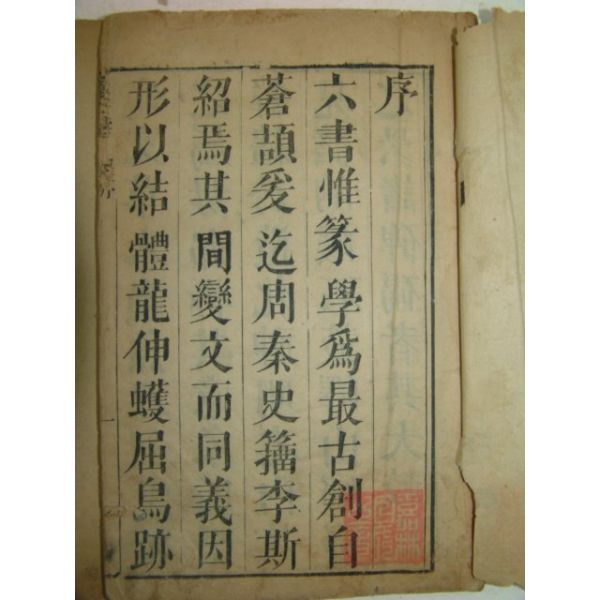 序
六書惟篆學爲最古創自
蒼頡爰迄周秦史籒李斯
紹焉其間變文而同義因
形以結體龍伸蠖屈鳥跡
一